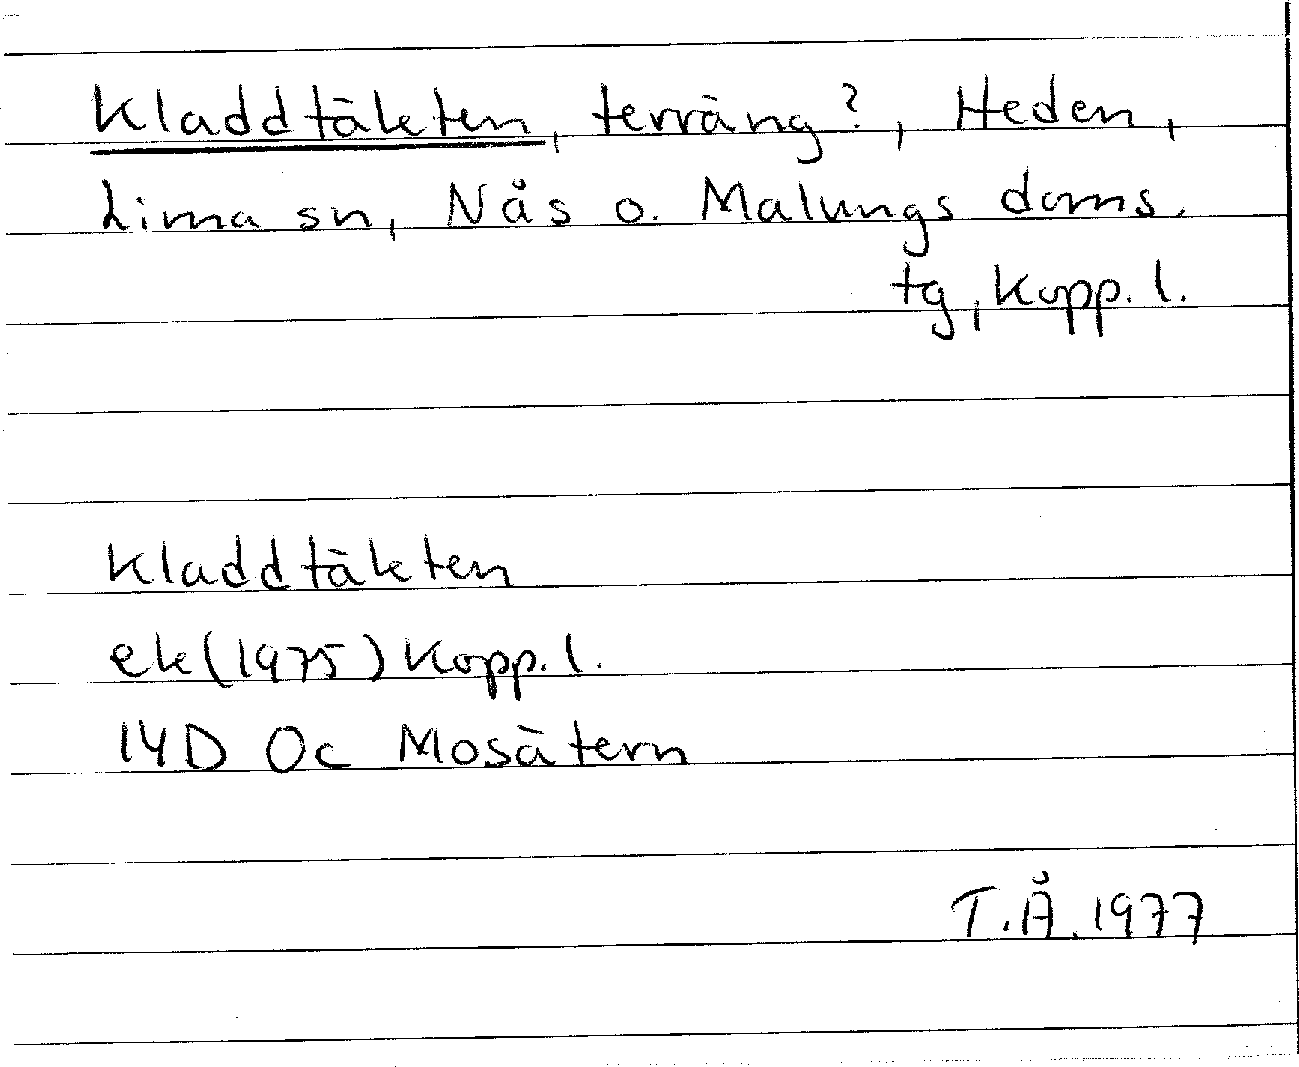 Kladdtäkten, terräng?, Heden,
Lima sn, Nås o. Malungs doms.
tg, Kopp. l.
Kladdtäkten
ek (1975) Kopp. l.
14D 0c Mosätern
T.Å. 1977